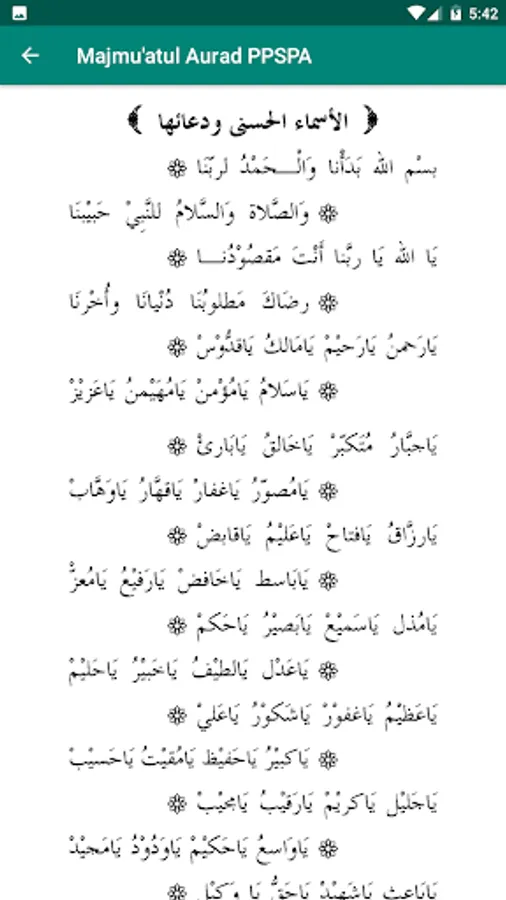 5:42
Majmu'atul Aurad PPSPA
﴿ الأسماء الحسنى ودعائها ﴾
بِسْمِ الله بَدَأْنَا وَالْـــحَمْدُ لِرَبِّنَا ۞
۞ وَالصَّلَاة وَالسَّلَامُ لِلنَّبِيْ حَبِيْبِنَا
يَا الله يَا رَبَّنَا أَنْتَ مَقصُوْدُنَـــا ۞
۞ رِضَاكَ مَطلوبُنَا دُنْيَانَا وأُخْرنَا
يَارَحمنُ يَارَحِيْمْ يَامَالكُ يَاقدُّوْسْ ۞
۞ يَاسَلَامُ يَامُؤْمنْ يَامُهَيْمنُ يَاعَزيْزْ
يَاجبَّارُ مُتَكبّرْ يَاخَالقُ يَابَارئْ ۞
۞ يَامُصوّرُ يَاغفارُ يَاقهَّارُ يَاوَهَّابْ
يَارزَّاقُ يَافتاحْ يَاعَليْمُ يَاقابضْ ۞
۞ يَابَاسط يَاخَافضْ يَارَفيْعُ يَامُعزّْ
يَامُذل يَاسَميْعْ يَابَصيْرُ يَاحَكمْ ۞
۞ يَاعَدْل يَالطيْفُ يَاخَبيْرُ يَاحَليْمْ
يَاعَظيْمُ يَاغفوْرْ يَاشَكوْرُ يَاعَليْ ۞
۞ يَاكبيْرُ يَاحَفيْظ يَامُقيْتُ يَاحَسيْبْ
يَاجَليْل يَاكريْمْ يَارَقيْبُ يَامجيْبْ ۞
۞ يَاوَاسعُ يَاحَكيْمْ يَاوَدُوْدُ يَامَجيْدْ
يَابَاعث يَاشَهيْدْ يَاحَقُّ يَا وَكيْل ۞